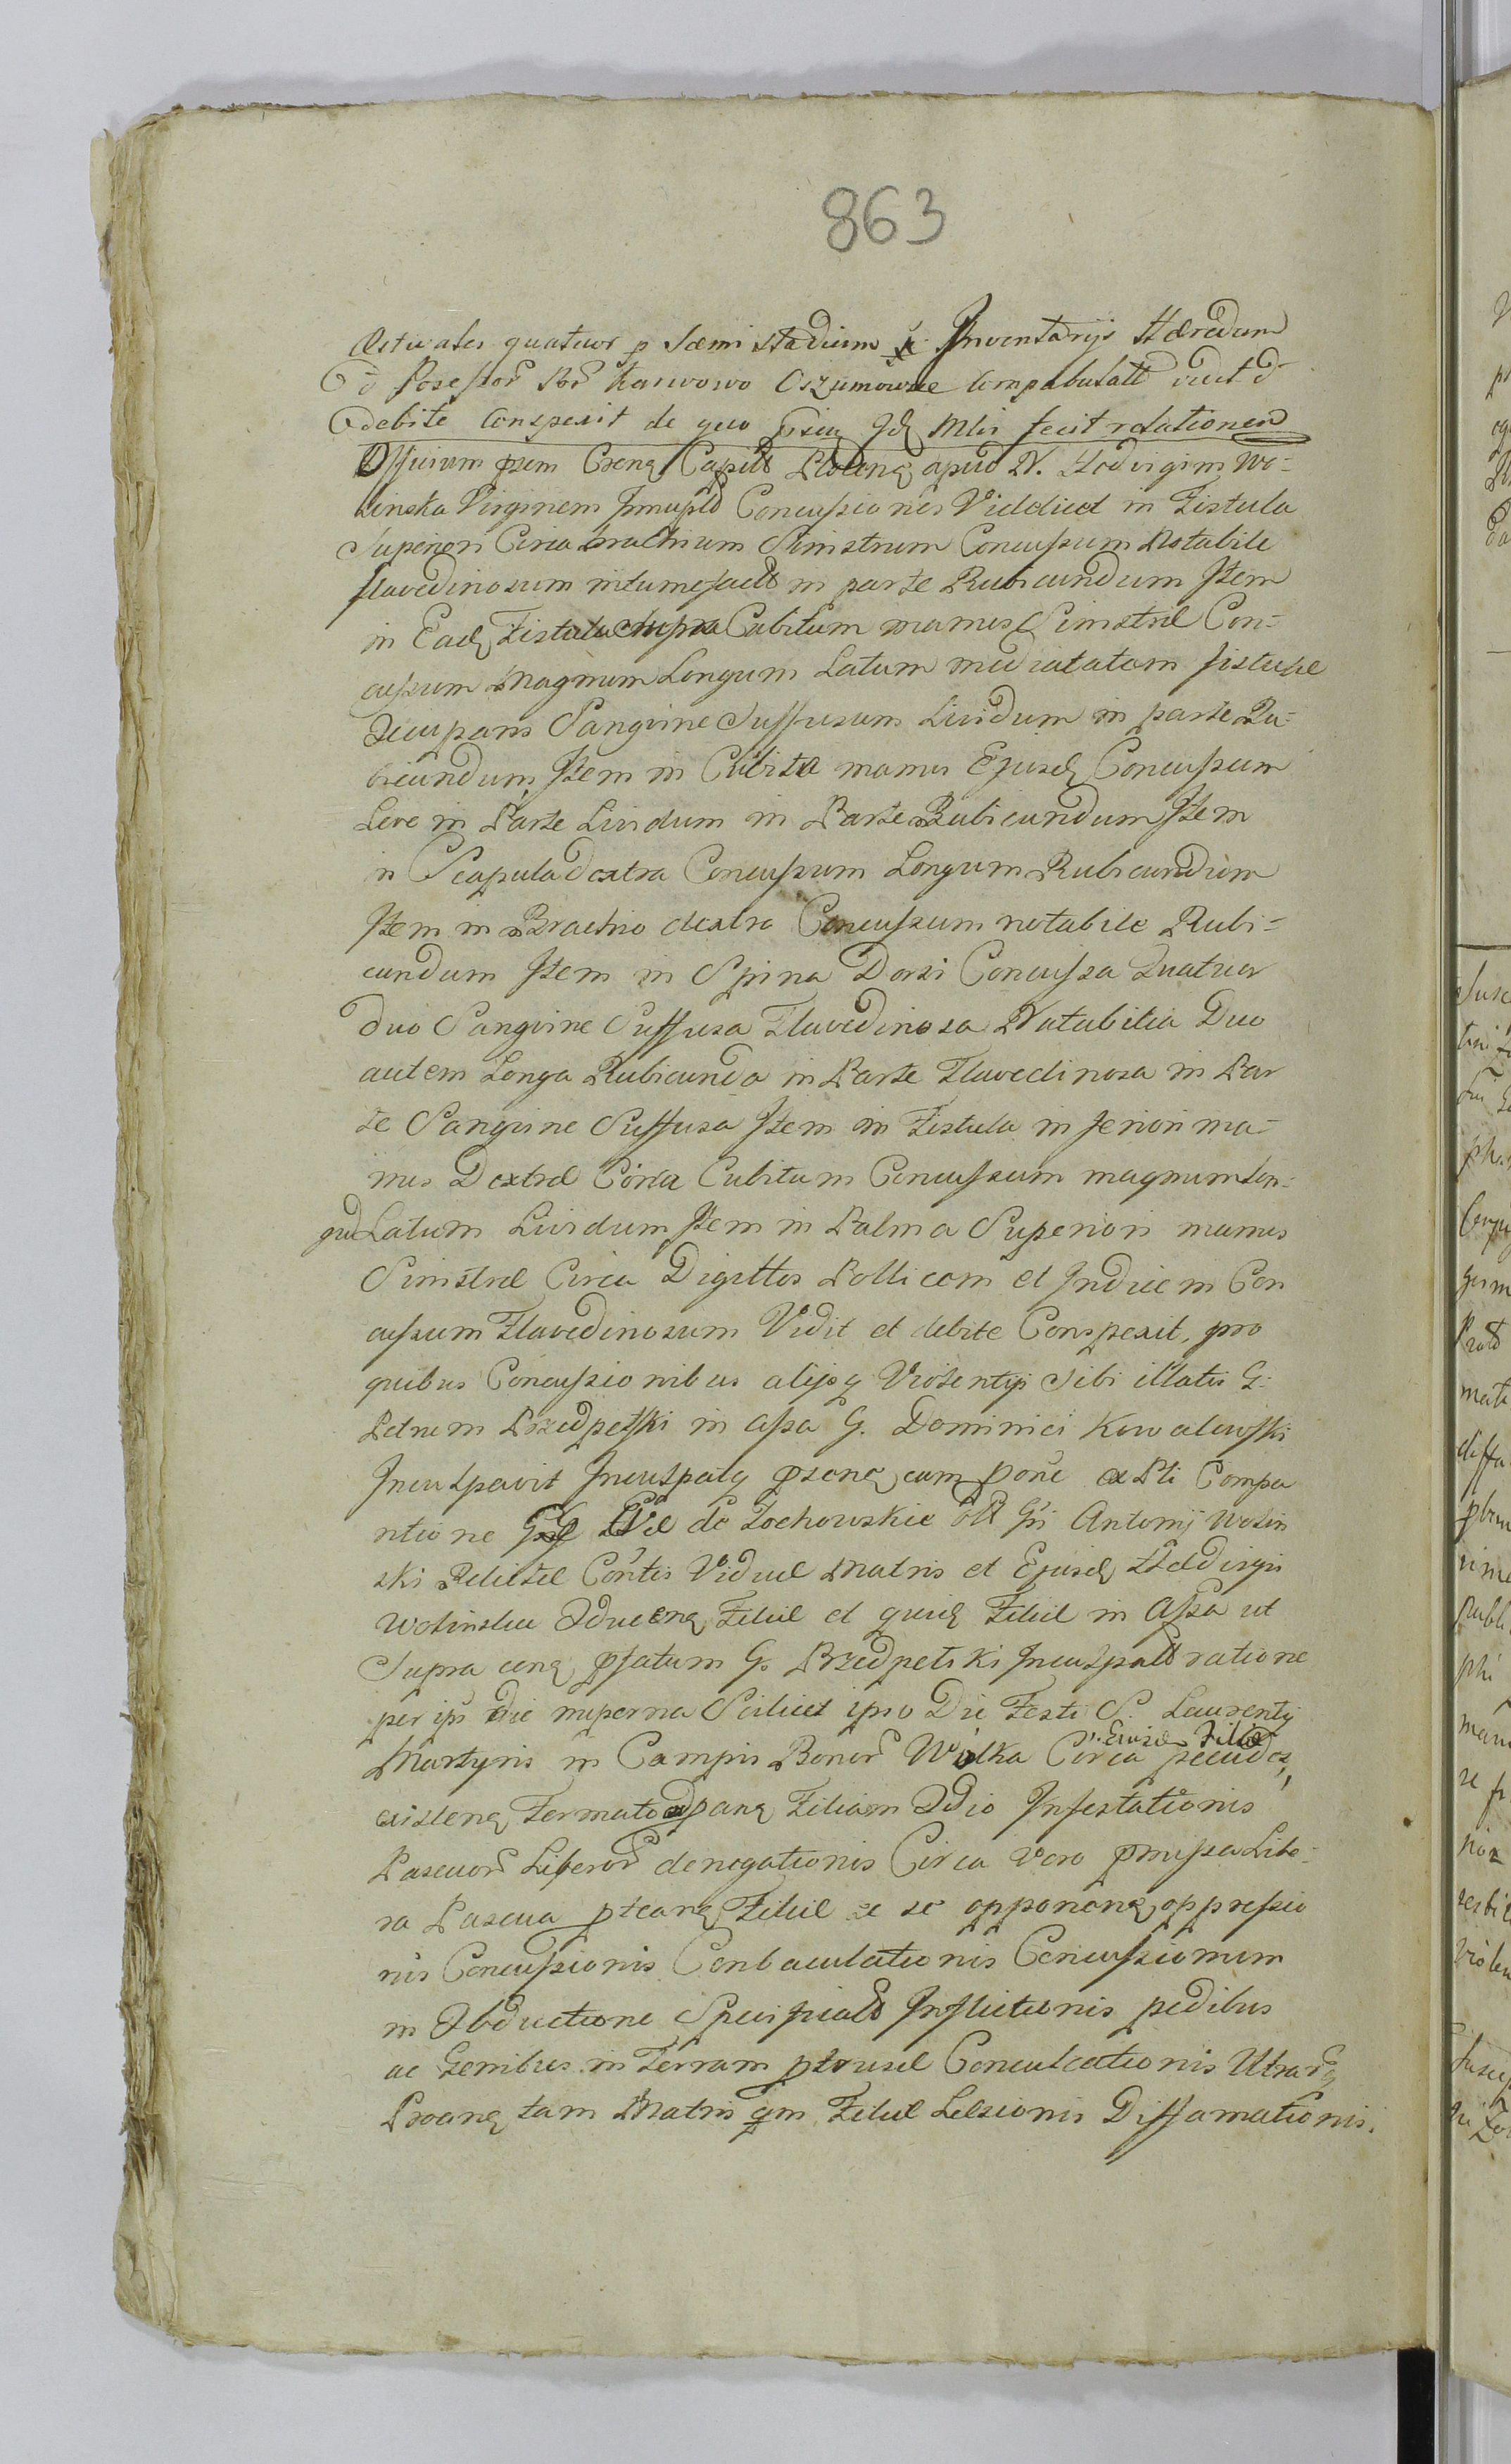 863
Æstivales quatuor p Sæmistadium Inventarijs Hæredum
Posessor Karwowo Oszumowne Compabulatt
debite Conspexit de quo Mlis fecit relationem
Officium psem Csenq Capitt Plocenq apud N. Hedvigim Wo-
linska Virginem Innuptã Concussiones Viddict in Fistula
Superiori Circa brachium Sinistrum Concussum Notabile
flavedinosum intumefactt in parte Rubicundum Item
in Eadq Fistula supra Cubitum manus Sinistræ Con-
cussum Magnum Longum Latum medietatem fistulæ
Occupans Sangvine Suffusum Lividum in parte Ru-
bicundum, Item in Cubito manus Ejusdq Concussum
Leve in Parte Lividum in Parte Rubicundum Item
in Scapula dextra Concussum Longum Rubicundum
Item in Brachio dextro Concussum notabile Rubi-
cundum Item in Spina Dorsi Concussa Quatuor
duo Sangvine Suffusa Flavedinosa Notabilia Duo
autem Longa Rubicunda in Parte Flavedinosa in Par
te Sangvine Suffusa Item in Fistula inferiori ma-
nus Dextræ Circa Cubitum Concussum magnum Lon-
gũ Latum Lividum Item in Palma Superiori manus
Sinistræ Circa Digittos Pollicem et Indicem Con
cussum Flavedinosum Vidit et debite Conspexit, pro
quibus Concussionibus alijsq Violentijs Sibi illatis G:
Petrum Przedpełski in assa G. Dominici Kowalewski
Inculpavit Inculpatq psenq cum pone ex Pti Compa
ntione de Zochowskie Gsi Antonij Wolin
ski Relictæ Contis Viduæ Matris et Ejusdq Hedvigis
Wolinska Educenq Filiæ et quidq Filiæ in Assa ut
Supra cenq pfatum G. Przedpełski Inculpatt ratione
per ips die nuperna Scilicet ipso Die Festi S. Laurentij
Martyris in Campis Bonor Wolka Circa Ejusd Filiæ pecudes,
existenq Termato panq Filiam Odio Infestationis
Pascuor Liberor denegationis Circa vero pmissa Libe-
ra Pascua ptcanq Filiæ e se opponenq oppressio
nis Concussionis Conbaculationis Concussionum
in Obductione Specificatt Inflictionis pedibus
ac Genibus in Terram ptrusæ Conculcationis Utrarq
Psoanq tam Matris qm Filiæ Læsionis Diffamationis.